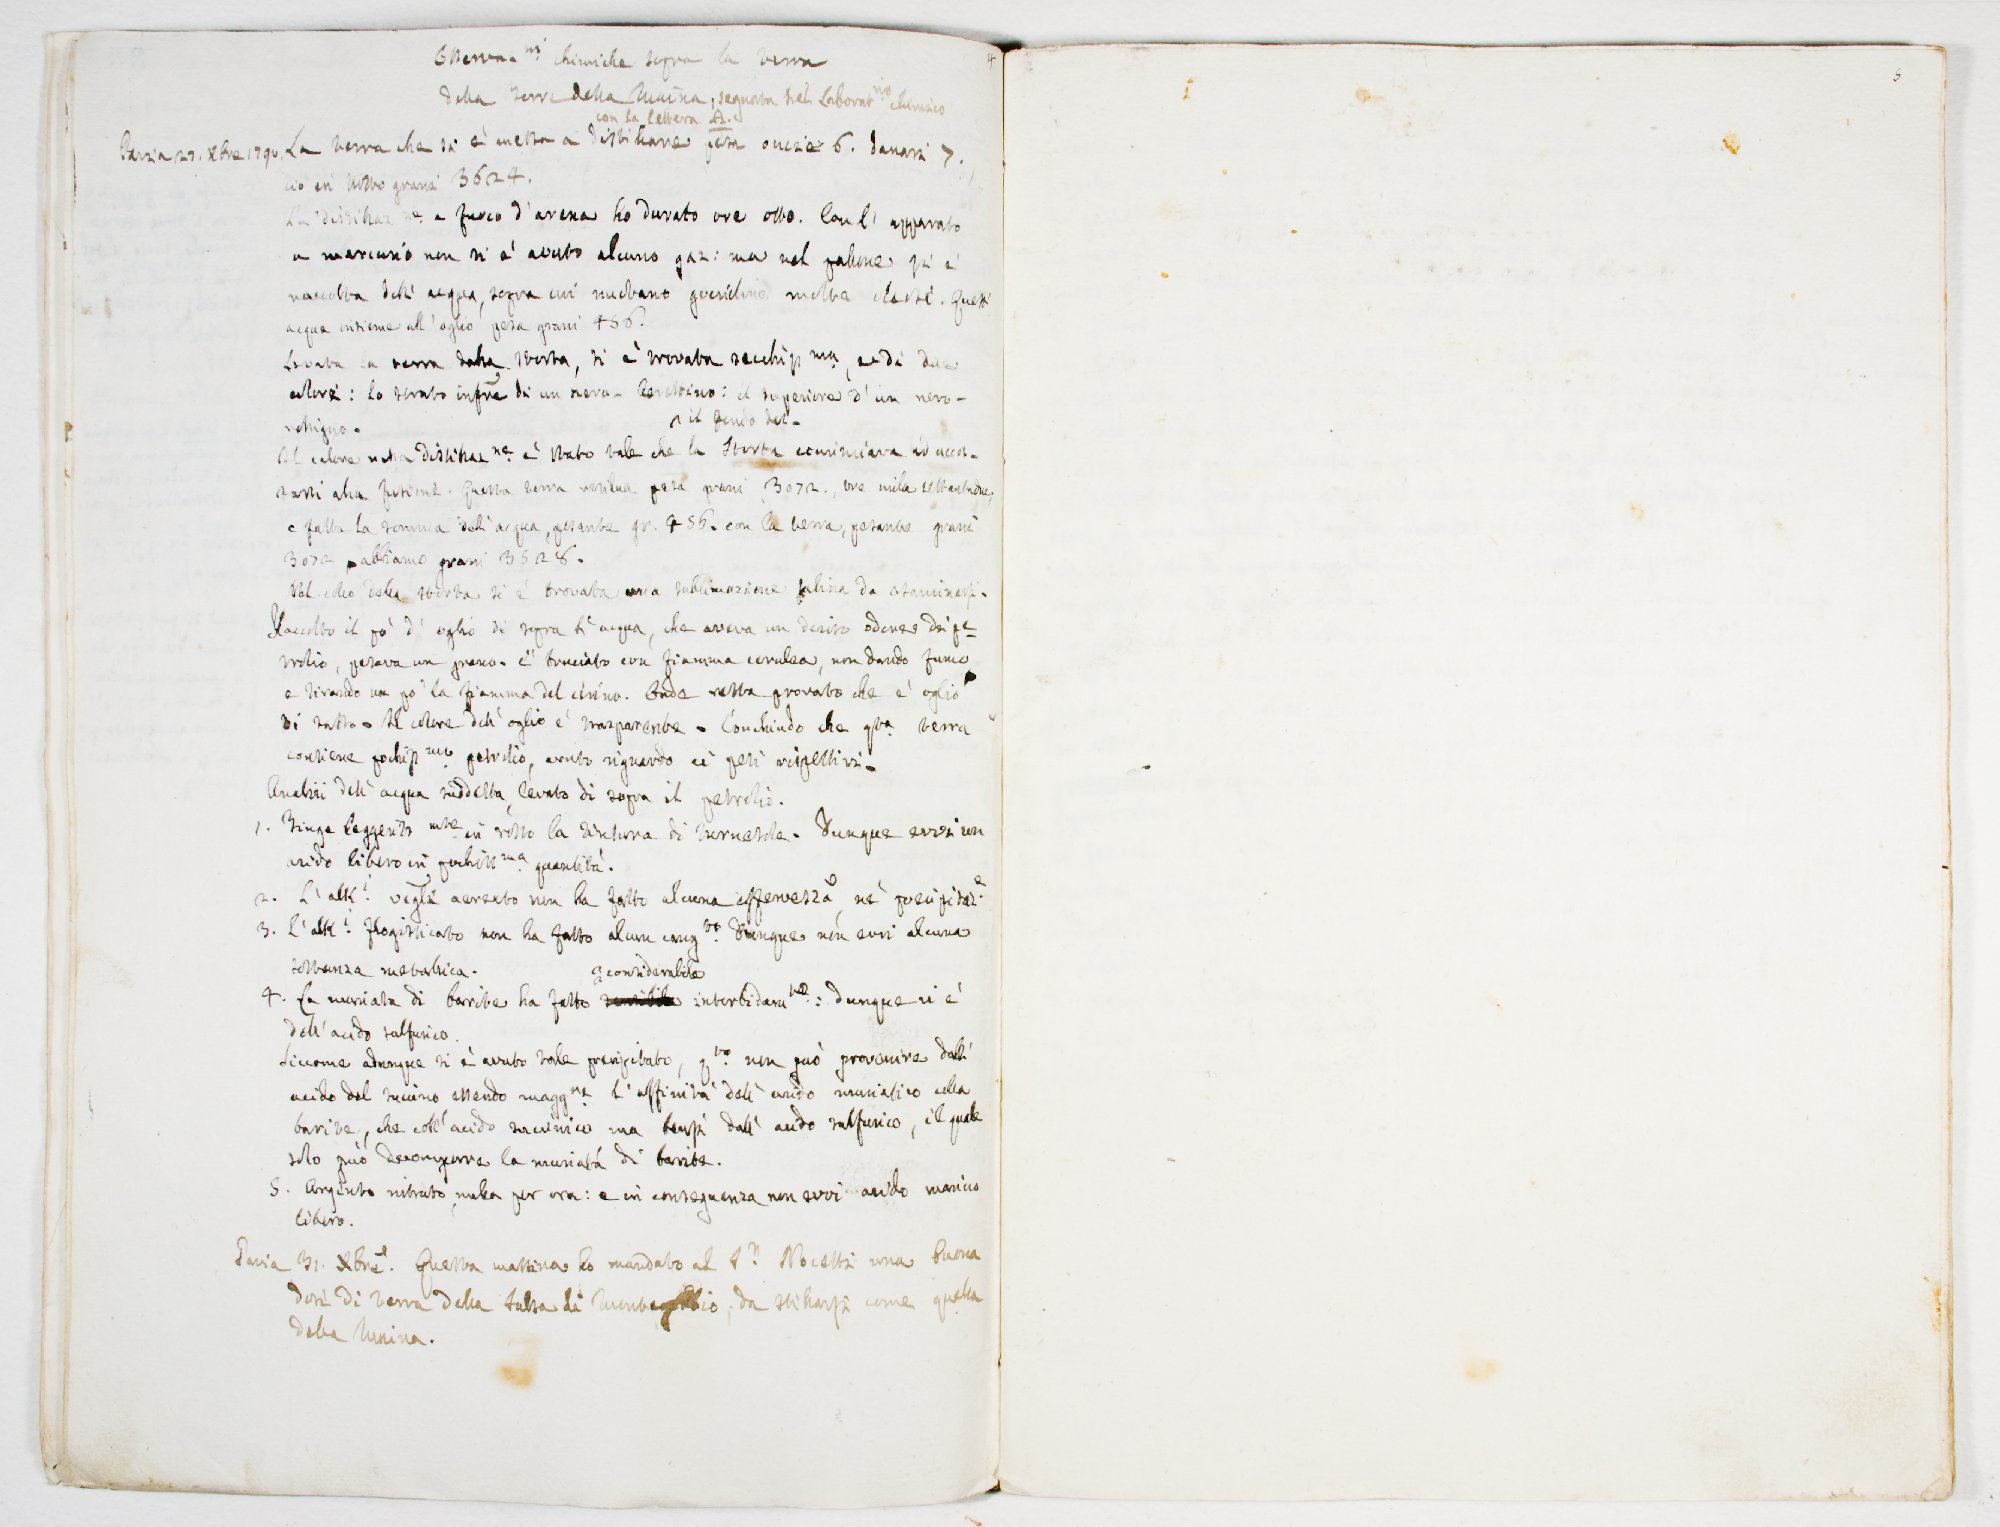 Osserva.ni chimiche sopra la terra
della Torre della Maina, segnata nel Laborat.rio chimico
con la lettera A.
4
Pavia 27. Xbre 1790. La terra che si è messa a distillare pesa oncie 6. danari 7.
cio in tutto grani 3624.
La distillaz.ne a fuoco d'arena ha durato ore otto. Coll' apparato
a mercurio non si è avuto alcuno gaz: ma nel pallone si è
raccolta dell' acqua, sopra cui nuotano goccioline molte oleose. Quest'
acqua insieme all' oglio pesa grani 456.
Levata la terra dalla storta, si è trovata secchiss.ma, e di due
colori: lo strato infre di un nero-: il superiore d' un nero-
rossigno.
il fondo del-
Il calore nella distillaz.ne è stato tale che la Storta cominciava ad accos-
tarsi alla fusione. Questa terra residua pesa grani 3072., tre mila settantadue,
e fatta la somma dell' acqua, pesante gr. 456. con la terra, pesante grani
3072 abbiamo grani 3528.
Nel collo della storta si è trovata una sublimazione salina da esaminarsi.
Raccolto il pò d' oglio di sopra l' acqua, che aveva un deciso odore di pe-
trolio, pesava un grano. È bruciato con fiamma cerulea, non dando fumo
e tirando un po' la fiamma del cerino. Onde resta provato che è oglio
di sasso. Il colore dell' oglio è trasparente. Conchiudo che q.ta terra
contiene pochiss.mo petrolio, avuto riguardo ai pesi rispettivi.
Analisi dell' acqua suddetta, levato di sopra il petrolio.
1. Tinge leggerm.te in rosso la tintura di tornesole. Dunque evvi un
acido libero in pochiss.ma quantità.
2. L' alk.i veg.li aereato non ha fatto alcuna effervesza, nè precipitaz.e
3. L' alk.i flogisticato non ha fatto alcun cang.to. Dunque non evvi alcuna
sostanza metallica.
considerabile
4. La muriata di barite ha fatto sensibile intorbidam.to: dunque vi è
dell' acido sulfurico.
Siccome adunque si è avuto tale precipitato, q.to non può provenire dall'
acido del succino essendo magg.re l' affinità dell' acido muriatico colla
barite, che coll' acido succinico ma bensì dall' acido sulfurico, il quale
solo può decomporre la muriata di barite.
5. Argento nitrato, nulla per ora: e in conseguenza non evvi acido marino
libero.
Pavia 31. Xbre. Questa mattina ho mandato al S.r Nocetti una buona
dose di terra della Salsa di Montegibbio, da stillarsi come quella
della Maina.
5